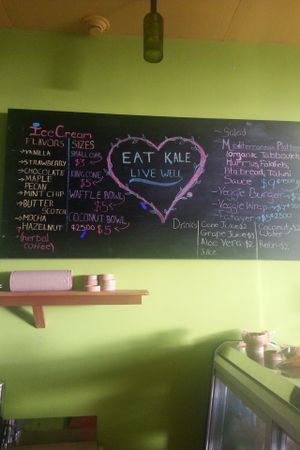 Ice Cream
FLAVORS
→ VANILLA
→ STRAWBERRY
→ CHOCOLATE
→ MAPLE
PECAN
→ MINT CHIP
→ BUTTER
SCOTCH
→ MOCHA
HAZELNUT
(herbal
coffee)
SIZES
SMALL CONE
$3
KING CONE
$5
WAFFLE BOWL
$5
COCONUT BOWL
$5
EAT KALE
LIVE WELL
~ Salad
~ Mediterranean Platter
(organic Tabbouleh
Hummus, Falafel,
Pita bread, Tahini
Sauce
~ Veggie Burger
~ Veggie Wrap
Drinks
Cane Juice $2
Grape Juice $1
Aloe Vera $2
Juice
Coconut $2
Water